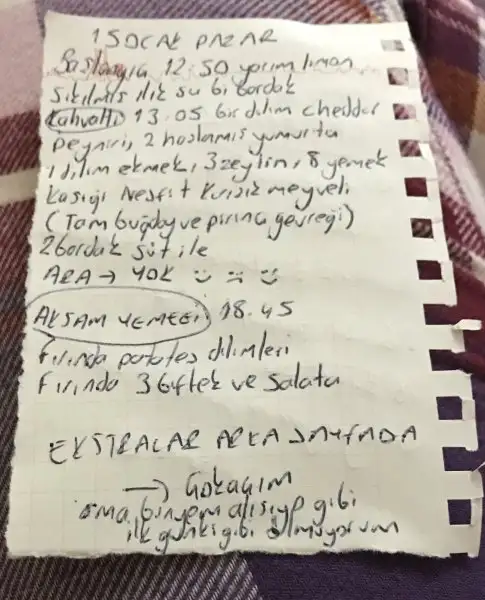 1 SOCAK PAZAR
Başlangıç 12:50 yarım limon
Sıkılmış ılık su bi bardak
Kahvaltı 13.05 bir dilim cheddar
peyniri, 2 haşlamış yumurta
1 dilim ekmek, 3 zeytin, 8 yemek
kaşığı Nesfit kırmızı meyveli
(Tam buğday ve pirinç gevreği)
2 bardak süt ile
ARA → YOK
AKŞAM YEMEĞİ 18.45
fırında patates dilimleri
fırında 3 biftek ve salata
EKSTRALAR ARKA SAYFADA
→
ama bünyem alışıyo gibi
ilk günki gibi olmuyorum